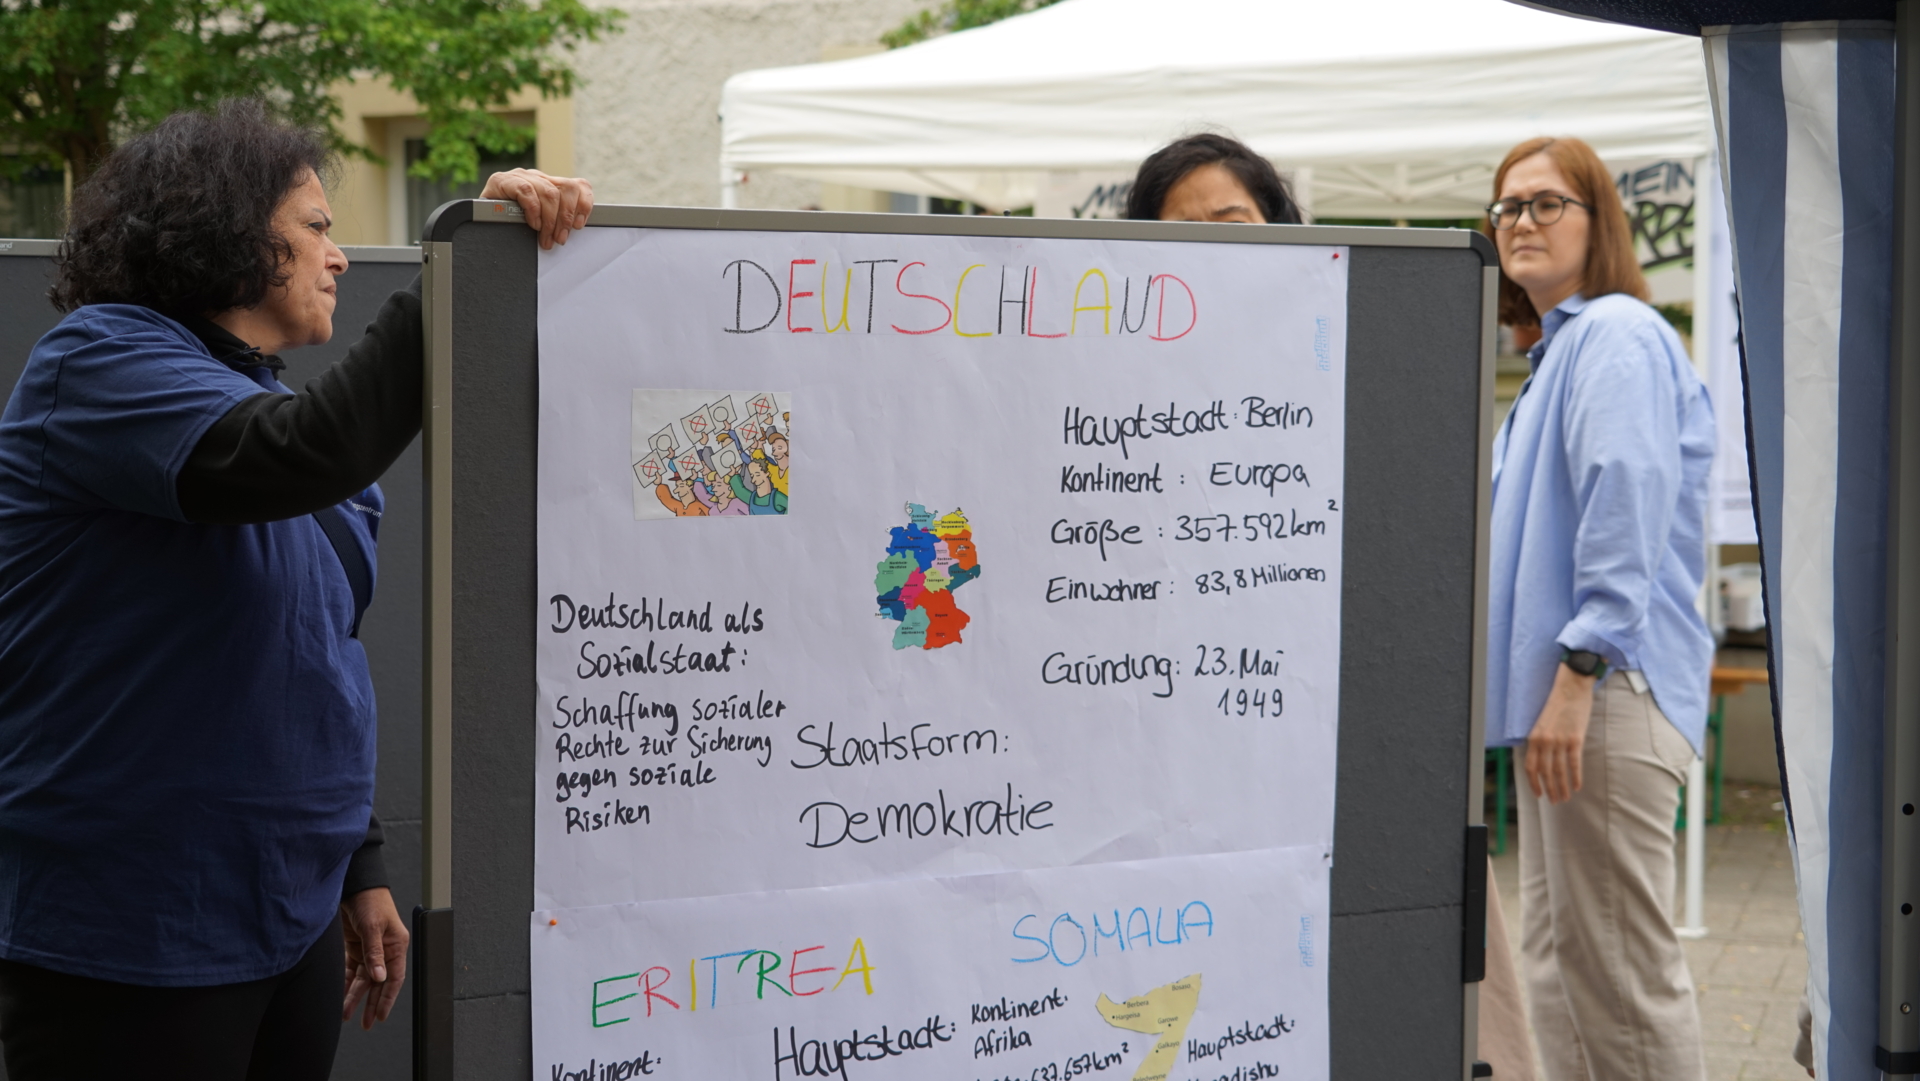 DEUTSCHLAND
Hauptstadt: Berlin
Kontinent: Europa
Größe: 357.592 km²
Einwohner: 83,8 Millionen
Gründung: 23. Mai
1949
Deutschland als
Sozialstaat:
Schaffung sozialer
Rechte zur Sicherung
gegen soziale
Risiken
Staatsform:
Demokratie
ERITREA
Kontinent:
Hauptstadt:
SOMALIA
Kontinent:
Afrika
637.657km²
Berbera
Bosaso
Hargeisa
Garowe
Galkayo
Hauptstadt:
MEIN